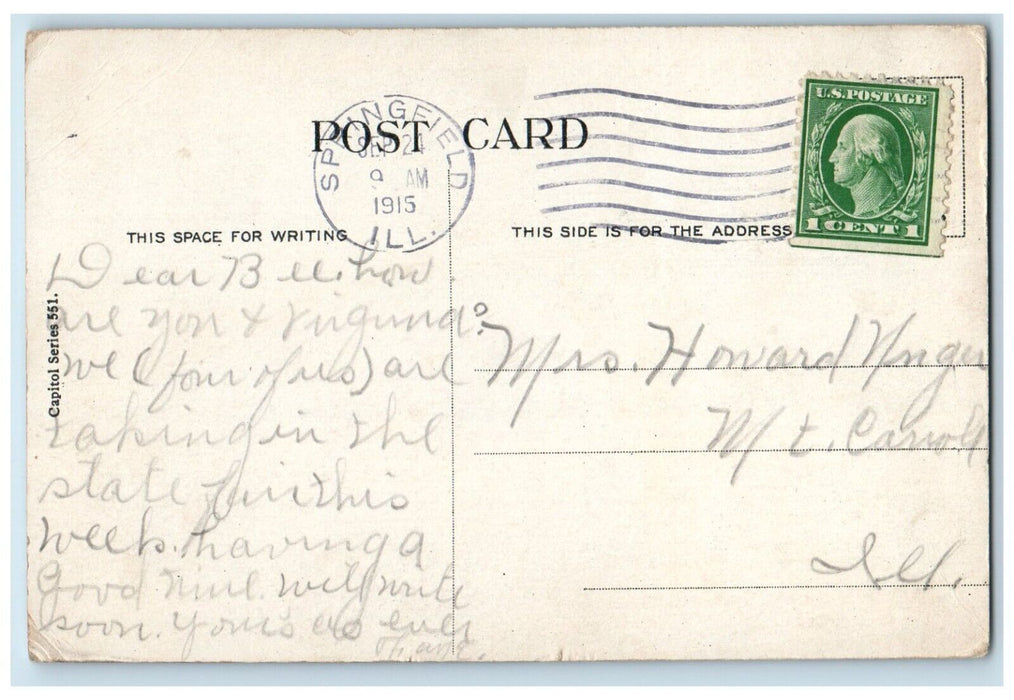 POST CARD
SPRINGFIELD
SEP 24
9 AM
1915
ILL.
U.S. POSTAGE
1 CENT 1
THIS SPACE FOR WRITING
THIS SIDE IS FOR THE ADDRESS
Capitol Series 551.
Dear Bee. how
are you & Virginia?
We (four of us) are
taking in the
state fair this
week. having a
good time will write
soon. Yours as ever
Mrs. Howard Unger
Mt. Carroll
Ill.